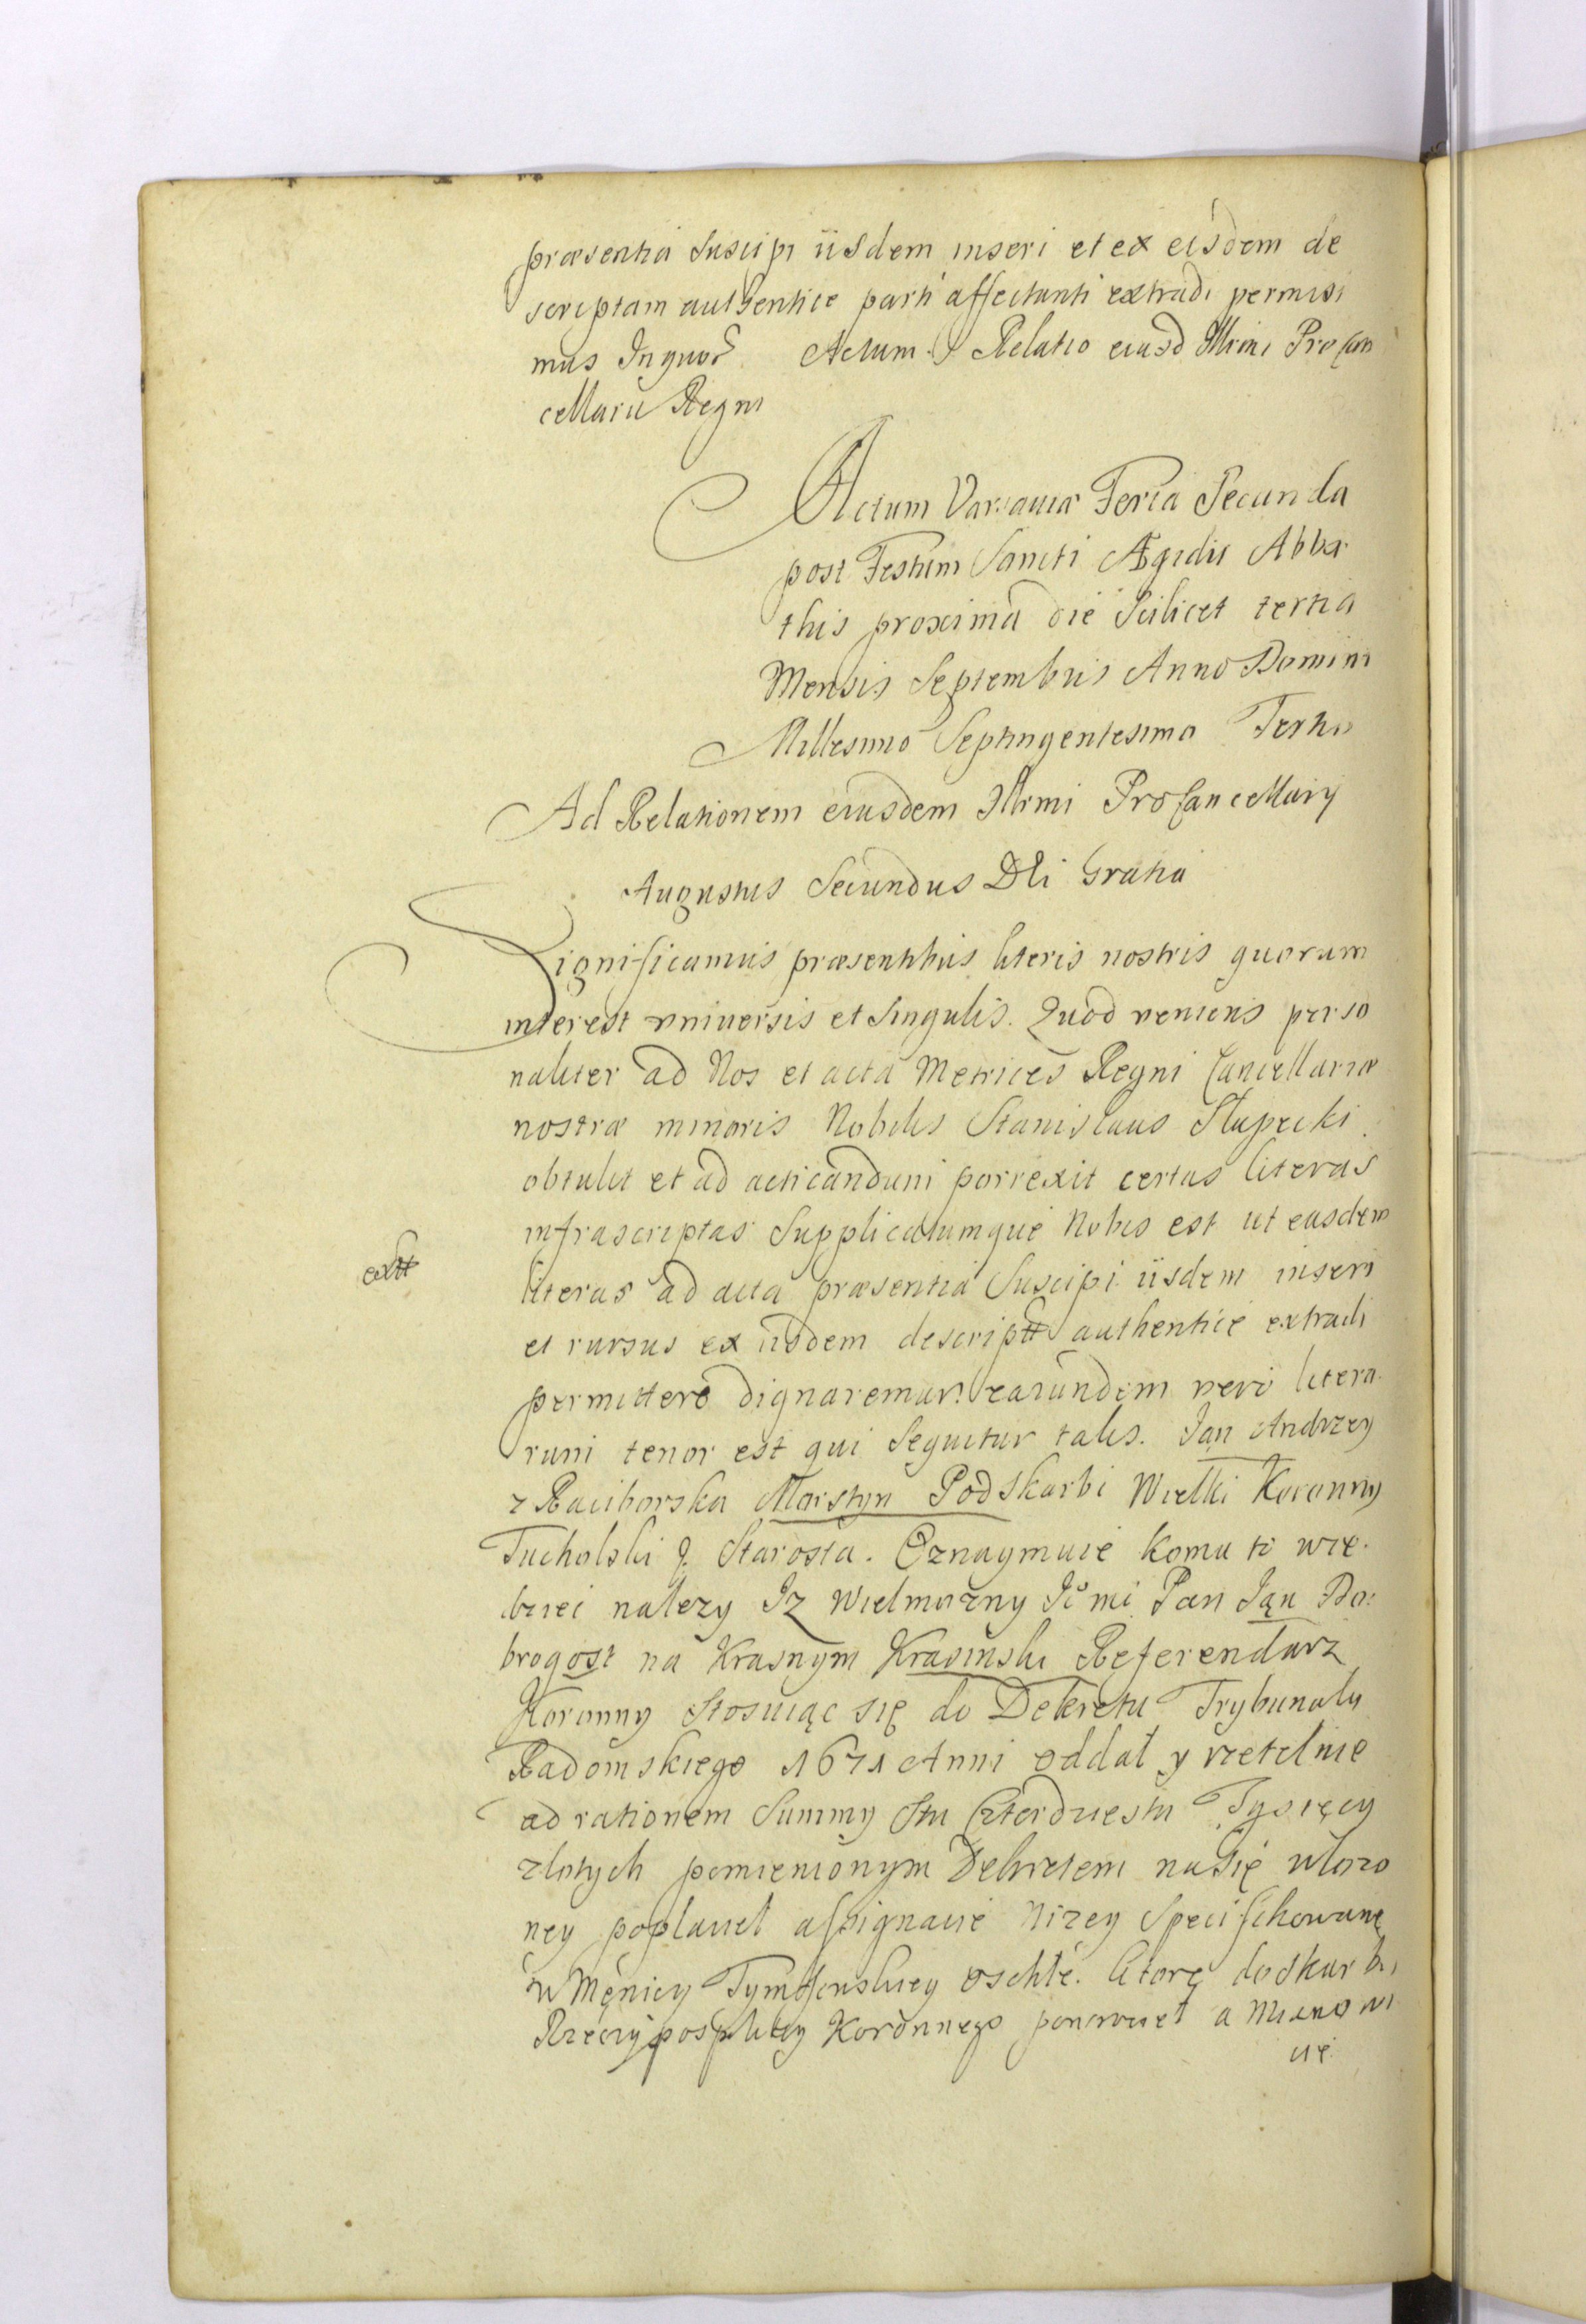 præsentia Suscipi iisdem inseri et ex eisdem de
scriptam authentice parti affectanti extradi permisi
mus Inquor Actum. Relatio eiusd Illrmi ProCan
cellarii Regni
Actum Varsaviæ Feria Secunda
post Festum Sancti Ægidii Abba
this proxima die Scilicet tertia
Mensis Septembris Anno Domini
Millesimo Septingentesimo Tertio
Ad Relationem eiusdem Illrmi ProCancellarij
Augustus Secundus DEi Gratia
Significamus præsentibus literis nostris quorum
interest vniuersis et Singulis. Quod veniens perso
naliter ad Nos et acta Metrices Regni Cancellariæ
nostræ minoris Nobilis Stanislaus Słupecki
obtulit et ad acticandum porrexit certas literas
infrascriptas Supplicatumque Nobis est ut easdem
extt
literas ad acta præsentia Suscipi iisdem inseri
et rursus ex iisdem descriptt authentice extradi
permittere dignaremur. earundem vero litera
rum tenor est qui Sequitur talis. Jan Andrzey
z Raciborska Morstyn Podskarbi Wielki Koronny
Tucholski Starosta. Oznaymuie komu to wie
dziec nalezy Iz Wielmozny Jmi Pan Jan Do:
brogost na Krasnym Krasinski Referendarz
Koronny Stosuiąc się do Dekretu Trybunału
Radomskiego 1671 Anni oddał y rzetelnie
ad rationem Summy Stu Czterdziestu Tysięcy
złotych pomienionym Dekretem na Się włozo
ney popłacił assignacie nizey Specifikowane
w Męnicy Tymffenskiey oschłe. ktore do skarbu
Rzeczypospolitey Koronnego ponowieł a Mianowi
cie